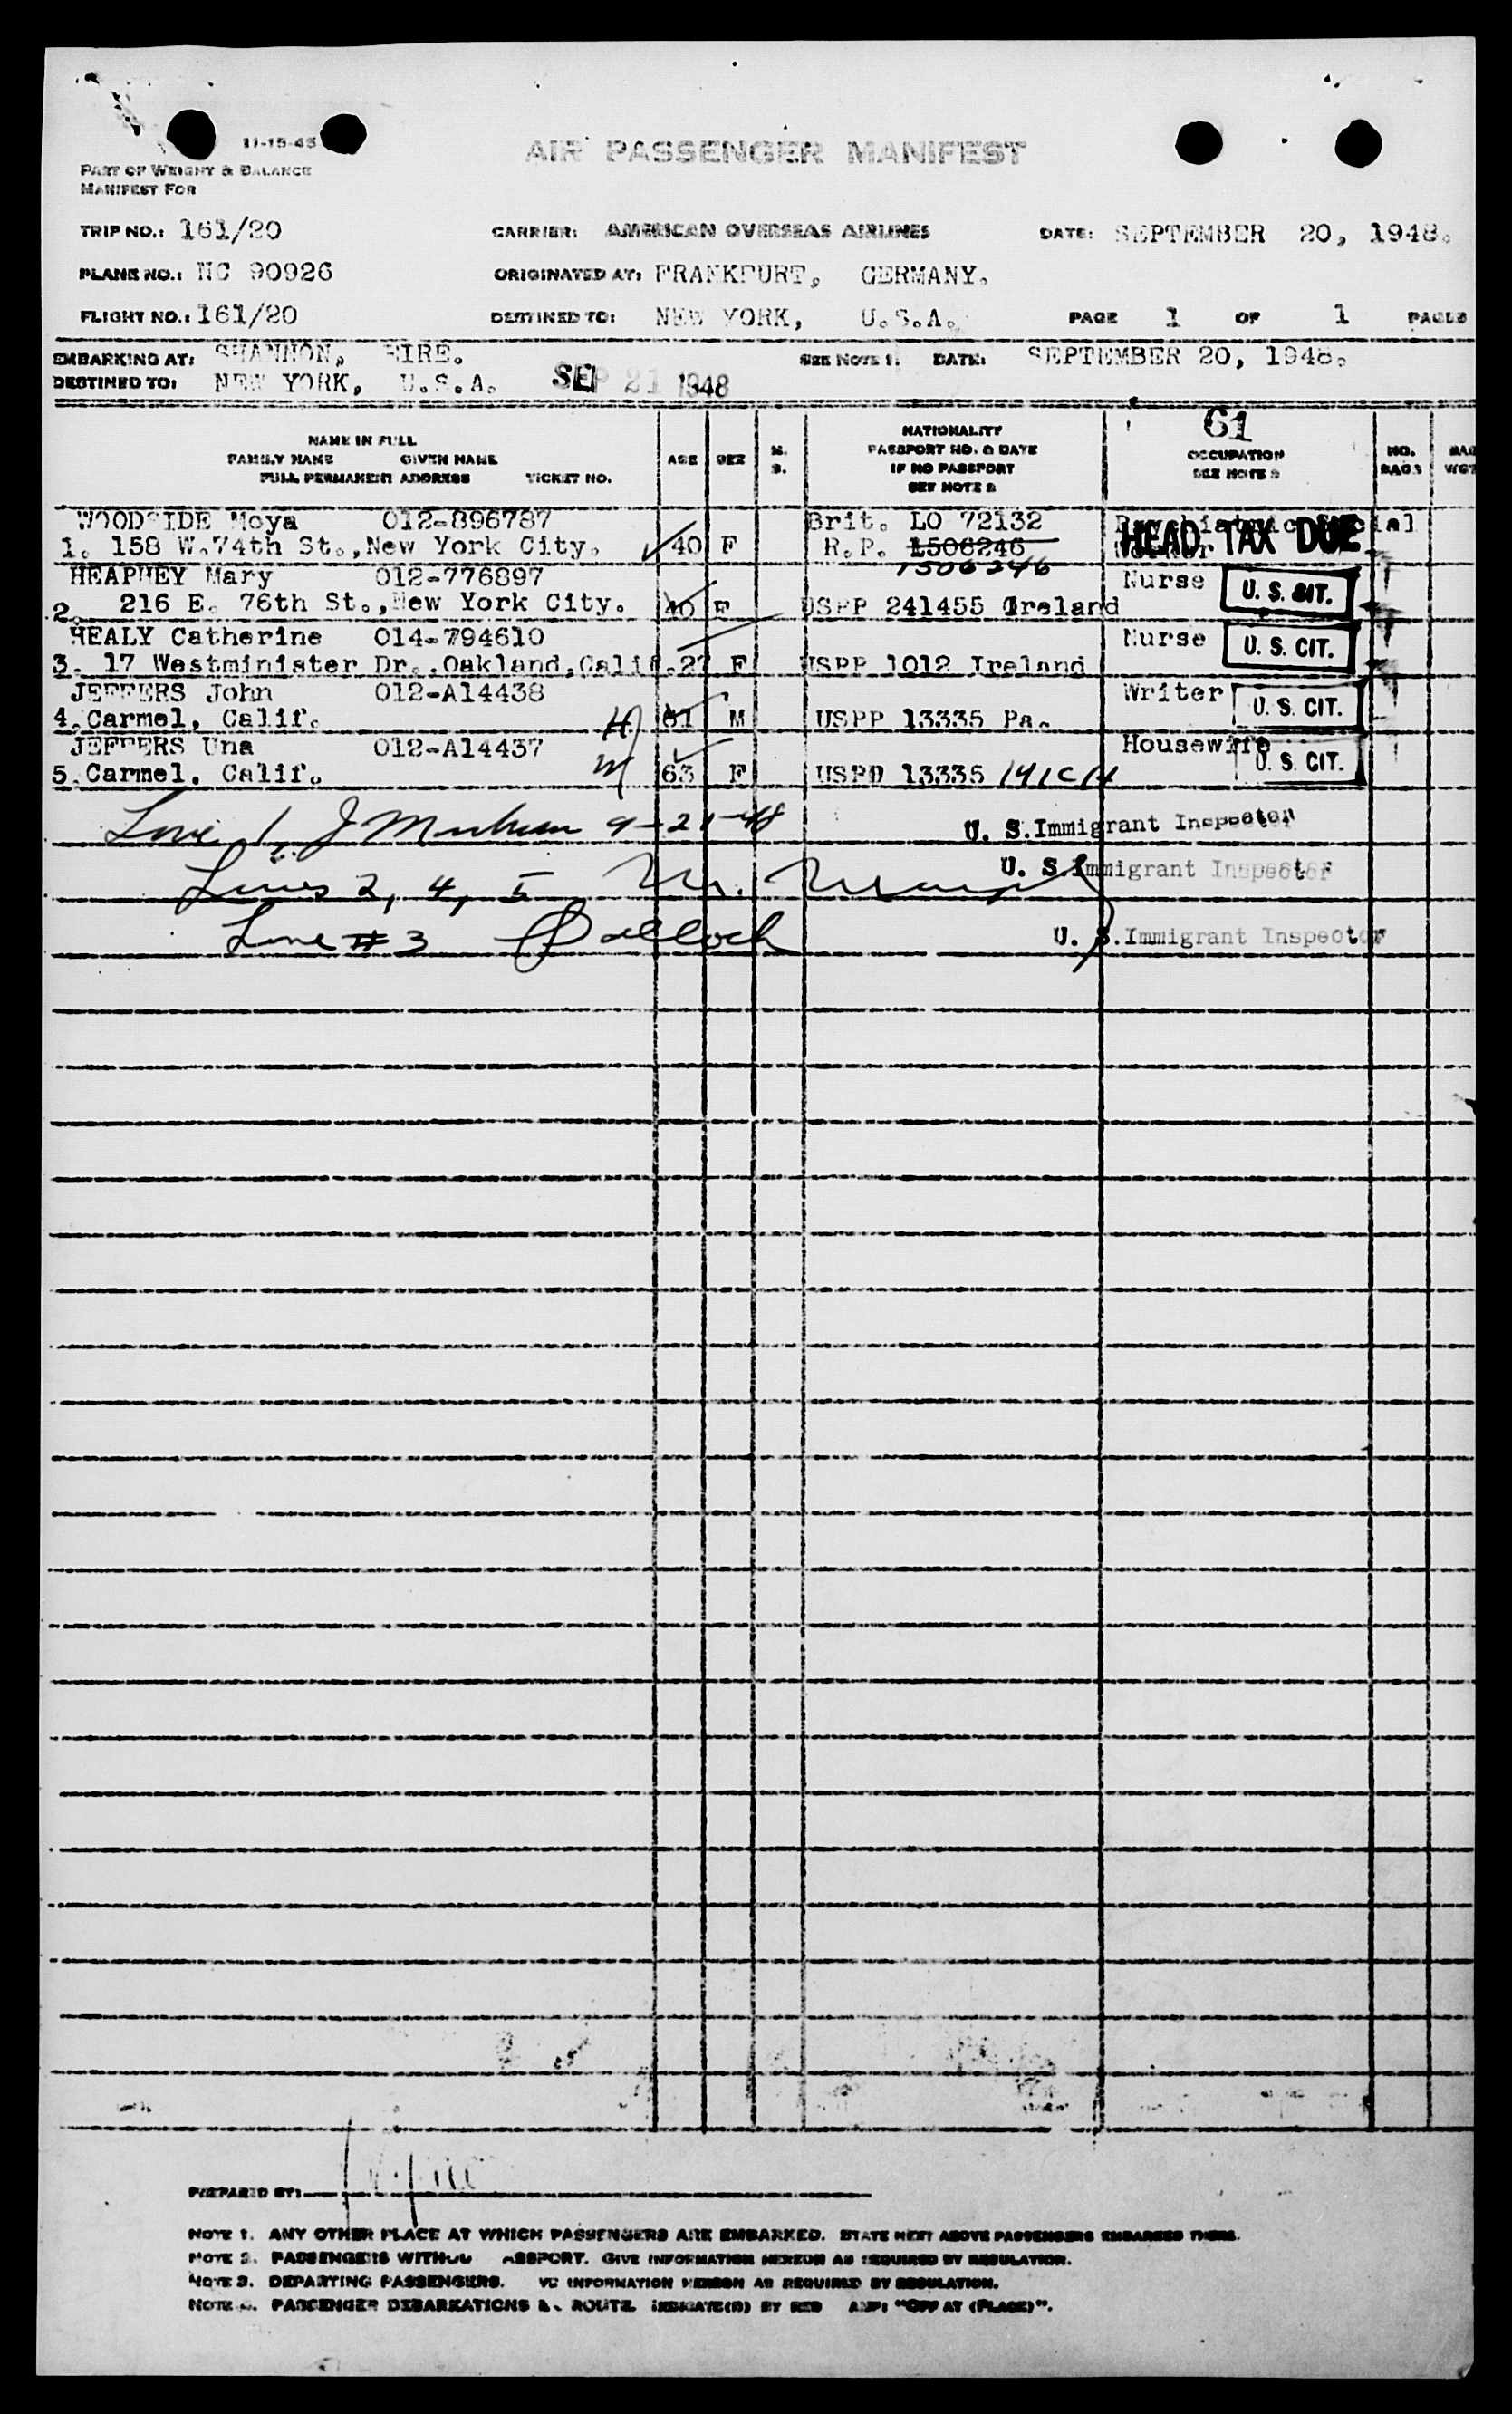 11-15-45
AIR PASSENGER MANIFEST
PART OF WEIGHT & BALANCE
MANIFEST FOR
TRIP NO.: 161/20 CARRIER: AMERICAN OVERSEAS AIRLINES DATE: SEPTEMBER 20, 1948.
PLANE NO.: NC 90926 ORIGINATED AT: FRANKFURT, GERMANY.
FLIGHT NO.: 161/20 DESTINED TO: NEW YORK, U.S.A. PAGE 1 OF 1 PAGES
EMBARKING AT: SHANNON, EIRE. SEE NOTE 1. DATE: SEPTEMBER 20, 1948.
DESTINED TO: NEW YORK, U.S.A. SEP 21 1948
61
NAME IN FULL
FAMILY NAME GIVEN NAME
FULL PERMANENT ADDRESS TICKET NO.
AGE SEX M. S.
NATIONALITY
PASSPORT NO. & DATE
IF NO PASSPORT
SEE NOTE 2
OCCUPATION
SEE NOTE 3
NO. BAGS
BAG WGT
WOODSIDE Moya 012-896787 Brit. LO 72132 Psychiatric Social
1. 158 W.74th St., New York City. 40 F R.P. 1506246 Worker HEAD TAX DUE
1506246
HEAPHEY Mary 012-776897 Nurse U. S. CIT.
2. 216 E. 76th St., New York City. 40 F USPP 241455 Ireland
HEALY Catherine 014-794610 Nurse U. S. CIT.
3. 17 Westminister Dr., Oakland, Calif. 27 F USPP 1012 Ireland
JEFFERS John 012-A14438 Writer U. S. CIT.
4. Carmel, Calif. H 61 M USPP 13335 Pa.
JEFFERS Una 012-A14437 Housewife U. S. CIT.
5. Carmel, Calif. W 63 F USPP 13335 141CH
Line 1, J 9-21-48 U. S. Immigrant Inspector
Lines 2, 4, 5 U. S. Immigrant Inspector
Line #3 U. S. Immigrant Inspector
PREPARED BY:
NOTE 1. ANY OTHER PLACE AT WHICH PASSENGERS ARE EMBARKED. STATE NEXT ABOVE PASSENGERS EMBARKED THERE.
NOTE 2. PASSENGERS WITHOU ASSPORT. GIVE INFORMATION HEREON AS REQUIRED BY REGULATION.
NOTE 3. DEPARTING PASSENGERS. VE INFORMATION HEREON AS REQUIRED BY REGULATION.
NOTE 4. PASSENGER DEBARKATIONS ROUTE INDICATE(D) BY RED "OFF AT (PLACE)".